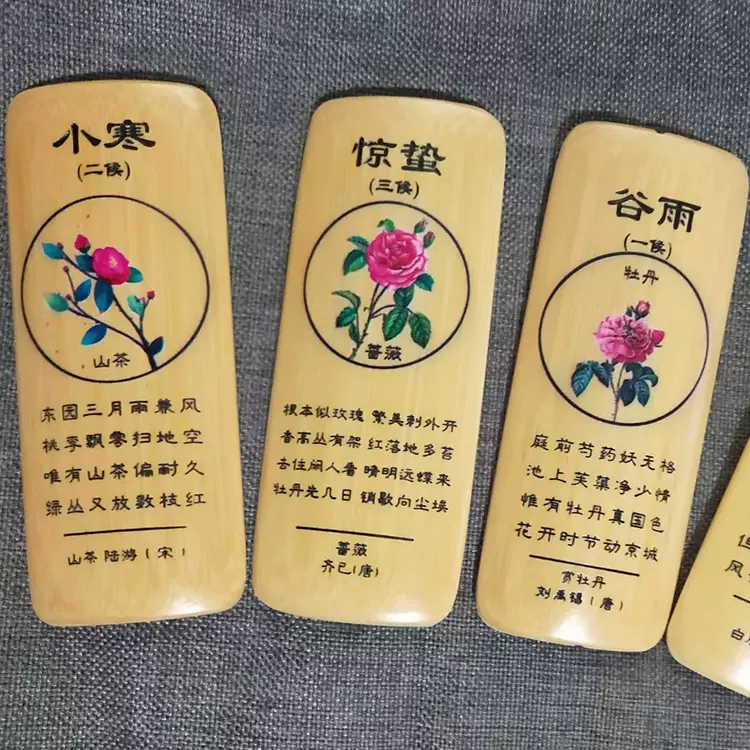 小寒
(二候)
山茶
东园三月雨兼风
桃李飘零扫地空
唯有山茶偏耐久
绿丛又放数枝红
山茶 陆游(宋)
惊蛰
(三候)
蔷薇
根本似玫瑰 繁美刺外开
香高丛有架 红落地多苔
去住闲人看 晴明远蝶来
牡丹先几日 销歇向尘埃
蔷薇
齐已(唐)
谷雨
(一候)
牡丹
庭前芍药妖无格
池上芙蕖净少情
惟有牡丹真国色
花开时节动京城
赏牡丹
刘禹锡(唐)
但
风
白